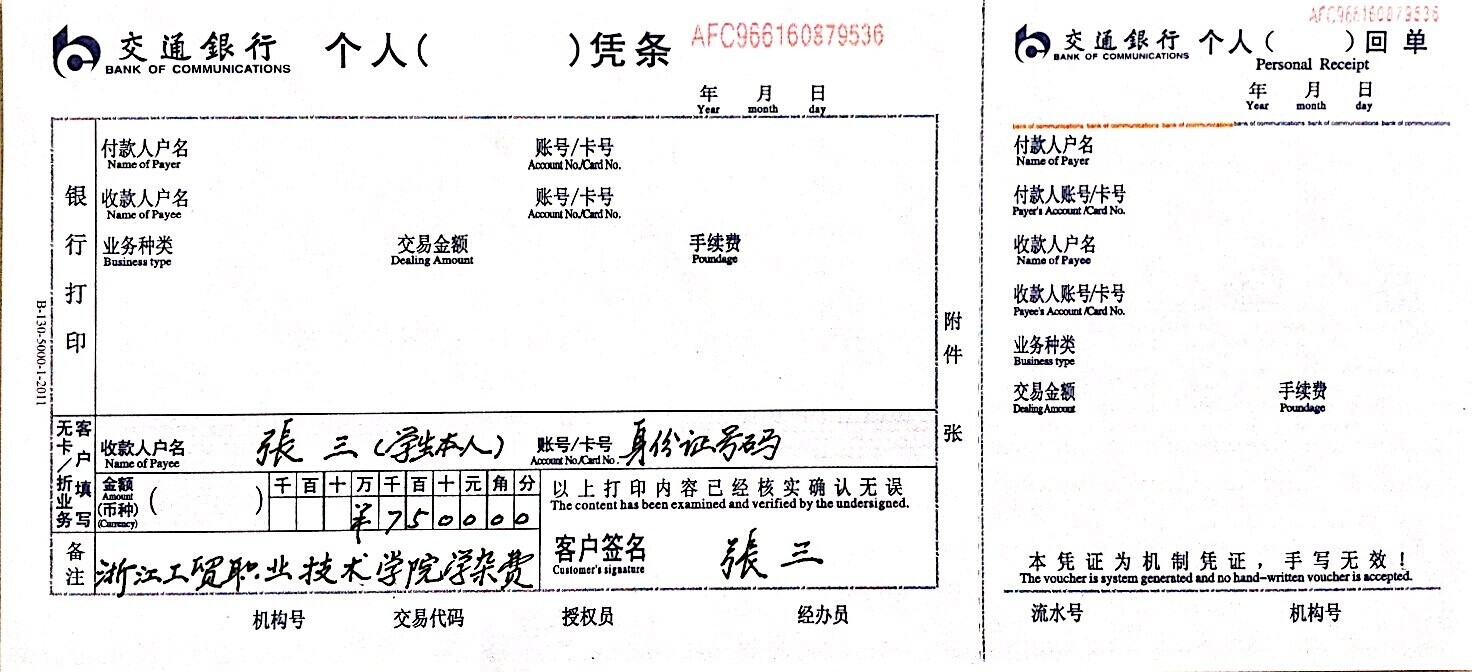 交通銀行 个人( )凭条 AFC966160879536
BANK OF COMMUNICATIONS
年 月 日
Year month day
付款人户名 账号/卡号
Name of Payer Account No./Card No.
收款人户名 账号/卡号
Name of Payee Account No./Card No.
业务种类 交易金额 手续费
Business type Dealing Amount Poundage
银行打印
B-130-5000-1-2011
附件 张
客户填写
无卡/折业务
收款人户名 張三(学生本人) 账号/卡号 身份证号码
Name of Payee Account No./Card No.
金额 ( ) 千 百 十 万 千 百 十 元 角 分
Amount
(币种) ¥ 7 5 0 0 0 0
(Currency)
以上打印内容已经核实确认无误
The content has been examined and verified by the undersigned.
备注 浙江工贸职业技术学院学杂费
客户签名 張三
Customer's signature
机构号 交易代码 授权员 经办员
AFC966160879536
交通銀行 个人( )回单
BANK OF COMMUNICATIONS Personal Receipt
年 月 日
Year month day
bank of communications bank of communications bank of communications bank of communications bank of communications bank of communications
付款人户名
Name of Payer
付款人账号/卡号
Payer's Account /Card No.
收款人户名
Name of Payee
收款人账号/卡号
Payee's Account /Card No.
业务种类
Business type
交易金额 手续费
Dealing Amount Poundage
本凭证为机制凭证，手写无效！
The voucher is system generated and no hand-written voucher is accepted.
流水号 机构号